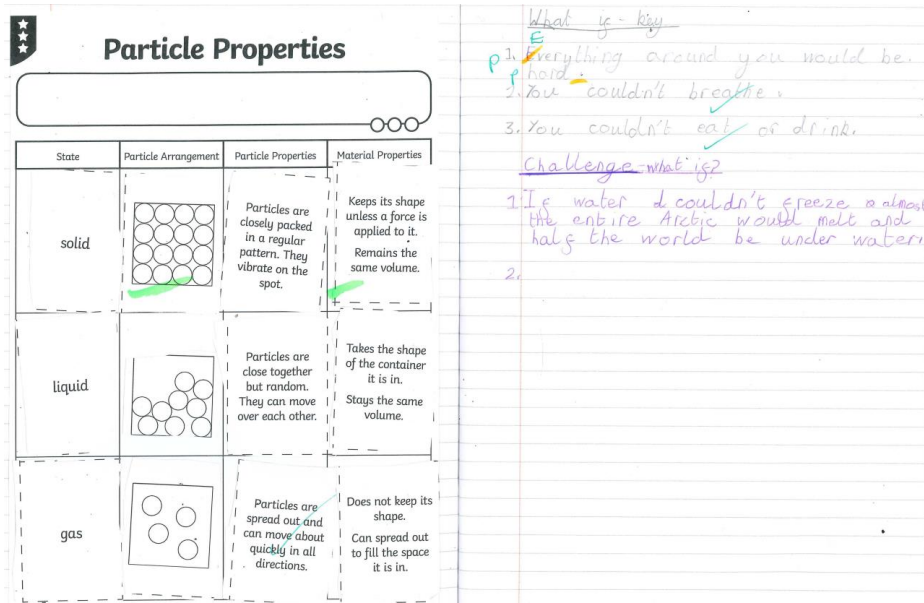 Particle Properties
State
Particle Arrangement
Particle Properties
Material Properties
solid
Particles are
closely packed
in a regular
pattern. They
vibrate on the
spot.
Keeps its shape
unless a force is
applied to it.
Remains the
same volume.
liquid
Particles are
close together
but random.
They can move
over each other.
Takes the shape
of the container
it is in.
Stays the same
volume.
gas
Particles are
spread out and
can move about
quickly in all
directions.
Does not keep its
shape.
Can spread out
to fill the space
it is in.
What if - key
E
P 1. Everything around you would be
P hard.
2. You couldn't breathe.
3. You couldn't eat or drink.
Challenge - what if?
1 If water couldn't freeze almost
the entire Arctic would melt and
half the world be under water
2.